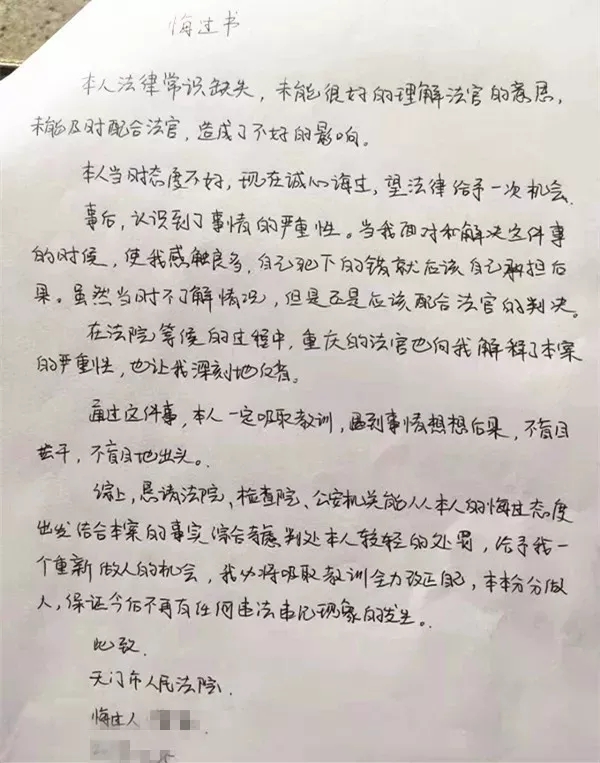 悔过书
本人法律常识缺失，未能很好的理解法官的意思，
未能及时配合法官，造成了不好的影响。
本人当时态度不好，现在诚心悔过，望法律给予一次机会.
事后，认识到了事情的严重性。当我面对和解决这件事
的时候，使我感触良多，自己犯下的错就应该自己承担后
果。虽然当时不了解情况，但是还是应该配合法官的判决。
在法院等候的过程中，重庆的法官也向我解释了本案
的严重性，也让我深刻地反省。
通过这件事，本人一定吸取教训，遇到事情想想后果，不盲目
苦干，不盲目地出头。
综上，恳请法院、检查院、公安机关能从本人的悔过态度
出发结合本案的事实综合考虑判处本人较轻的处罚，给予我一
个重新做人的机会，我必将吸取教训全力改正自己，本本分分做
人，保证今后不再有任何违法事记现象的发生。
此致
天门市人民法院
悔过人